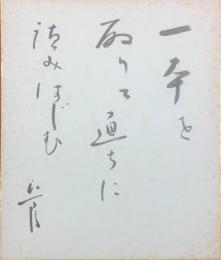 一本を
取りて直ちに
読みはじむ